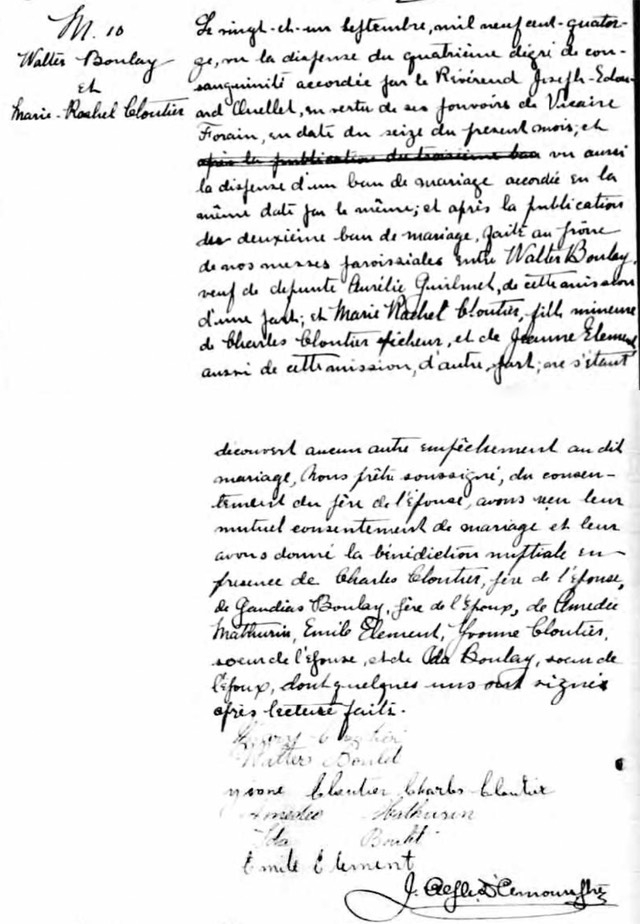 M. 10
Walter Boulay
et
Marie-Rachel Cloutier
Le vingt-et-un Septembre, mil neuf cent-quator-
ze, vu la dispense du quatrième dégré de con-
sanguinité accordée par le Révérend Joseph-Edou-
ard Ouellet, en vertu de ses pouvoirs de Vicaire
Forain, en date du seize du présent mois; et
après la publication du troisième ban vu aussi
la dispense d'un ban de mariage accordée en la
même date par le même; et après la publication
du deuxième ban de mariage, faite au prône
de nos messes paroissiales entre Walter Boulay,
veuf de defunte Aurélie Guilmet, de cette mission
d'une part; et Marie Rachel Cloutier, fille mineure
de Charles Cloutier pêcheur, et de Jeanne Element
aussi de cette mission, d'autre part; ne s'étant
découvert aucun autre empêchement au dit
mariage, Nous prêtre soussigné, du consen-
tement du père de l'épouse, avons reçu leur
mutuel consentement de mariage et leur
avons donné la bénédiction nuptiale en
presence de Charles Cloutier, père de l'épouse,
de Gaudias Boulay, frère de l'Epoux, de Amedée
Mathurin, Emile Element, Yvonne Cloutier,
soeur de l'épouse, et de Ida Boulay, soeur de
l'époux, dont quelques uns ont signé
après lecture faite.
Cloutier
Walter Boulet
yvone Cloutier Charles Cloutier
Amedee Mathurin
Ida Boulet
Emile Element
J. Alfred